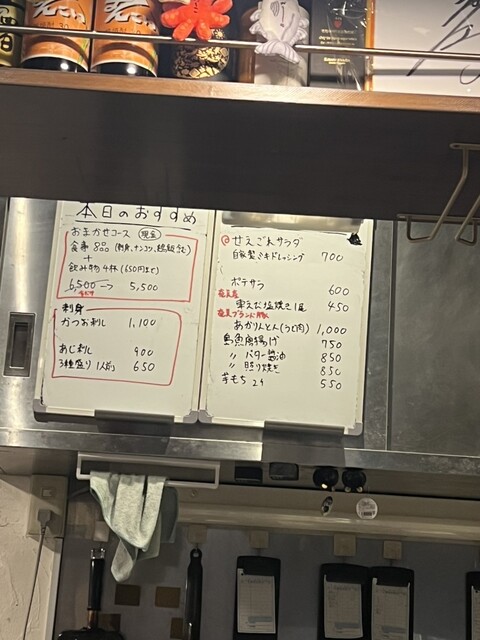 本日のおすすめ
おまかせコース 現金
食事 8品
+
飲み物4杯(650円まで)
6,500 → 5,500
刺身
かつお刺し 1,100
あじ刺し 900
3種盛り 1人前 650
せえごれサラダ
自家製ミキドレッシング 700
ポテサラ 600
奄美産
車えび塩焼き1尾 450
奄美ブランド豚
あかりんとん(うで肉) 1,000
島魚唐揚げ 750
〃 バター醤油 850
〃 照り焼き 850
芋もち 2ケ 550